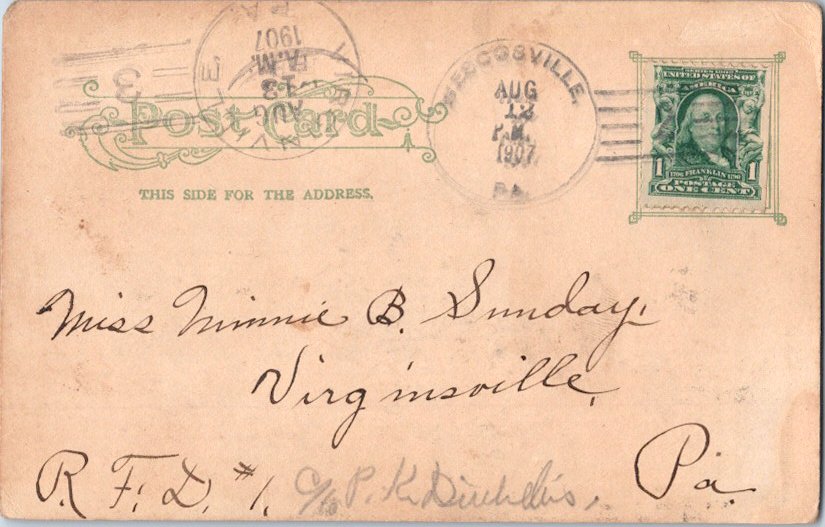 3
PA.
A.M.
AUG
13
1907
Post Card
THIS SIDE FOR THE ADDRESS.
WESCOSVILLE,
AUG
12
P.M.
1907
PA.
SERIES 1902
UNITED STATES OF
AMERICA
1 FRANKLIN 1
POSTAGE
ONE CENT
Miss Minnie B. Sunday,
Virginsville,
Pa.
R. F. D. #1. c/o P. K.